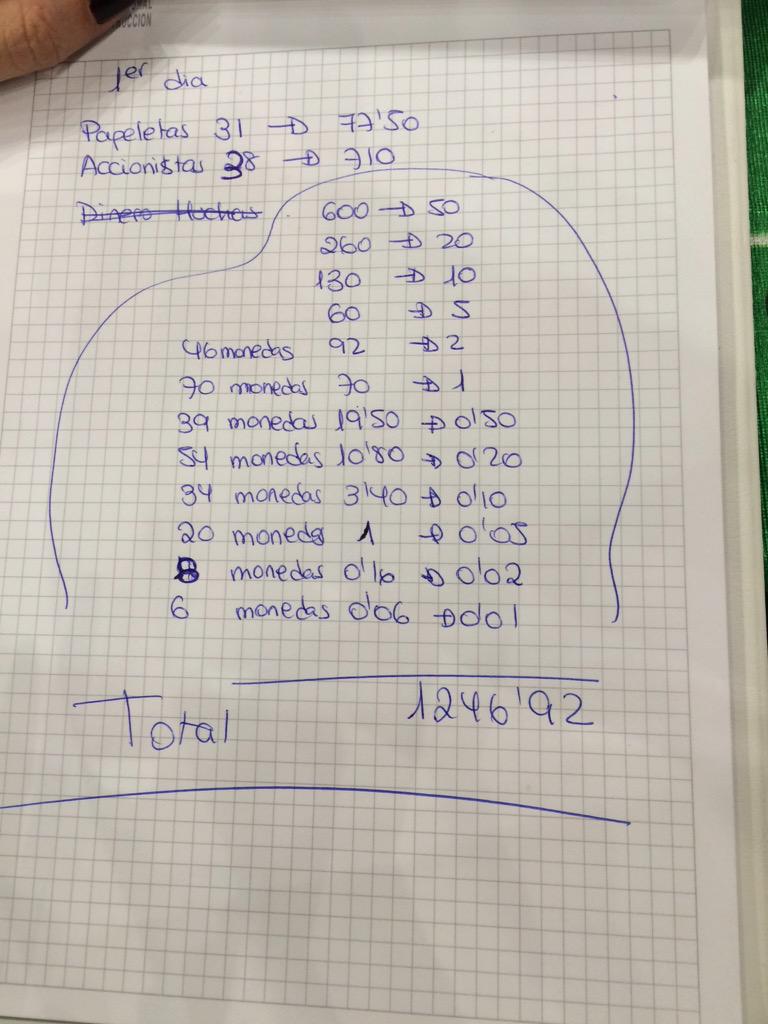 UCCION
1er dia
Papeletas 31 → 77'50
Accionistas 38 → 710
Dinero Huchas
600 → 50
260 → 20
130 → 10
60 → 5
46 monedas 92 → 2
70 monedas 70 → 1
39 monedas 19'50 → 0'50
54 monedas 10'80 → 0'20
34 monedas 3'40 → 0'10
20 monedas 1 → 0'05
8 monedas 0'16 → 0'02
6 monedas 0'06 → 0'01
Total 1246'92